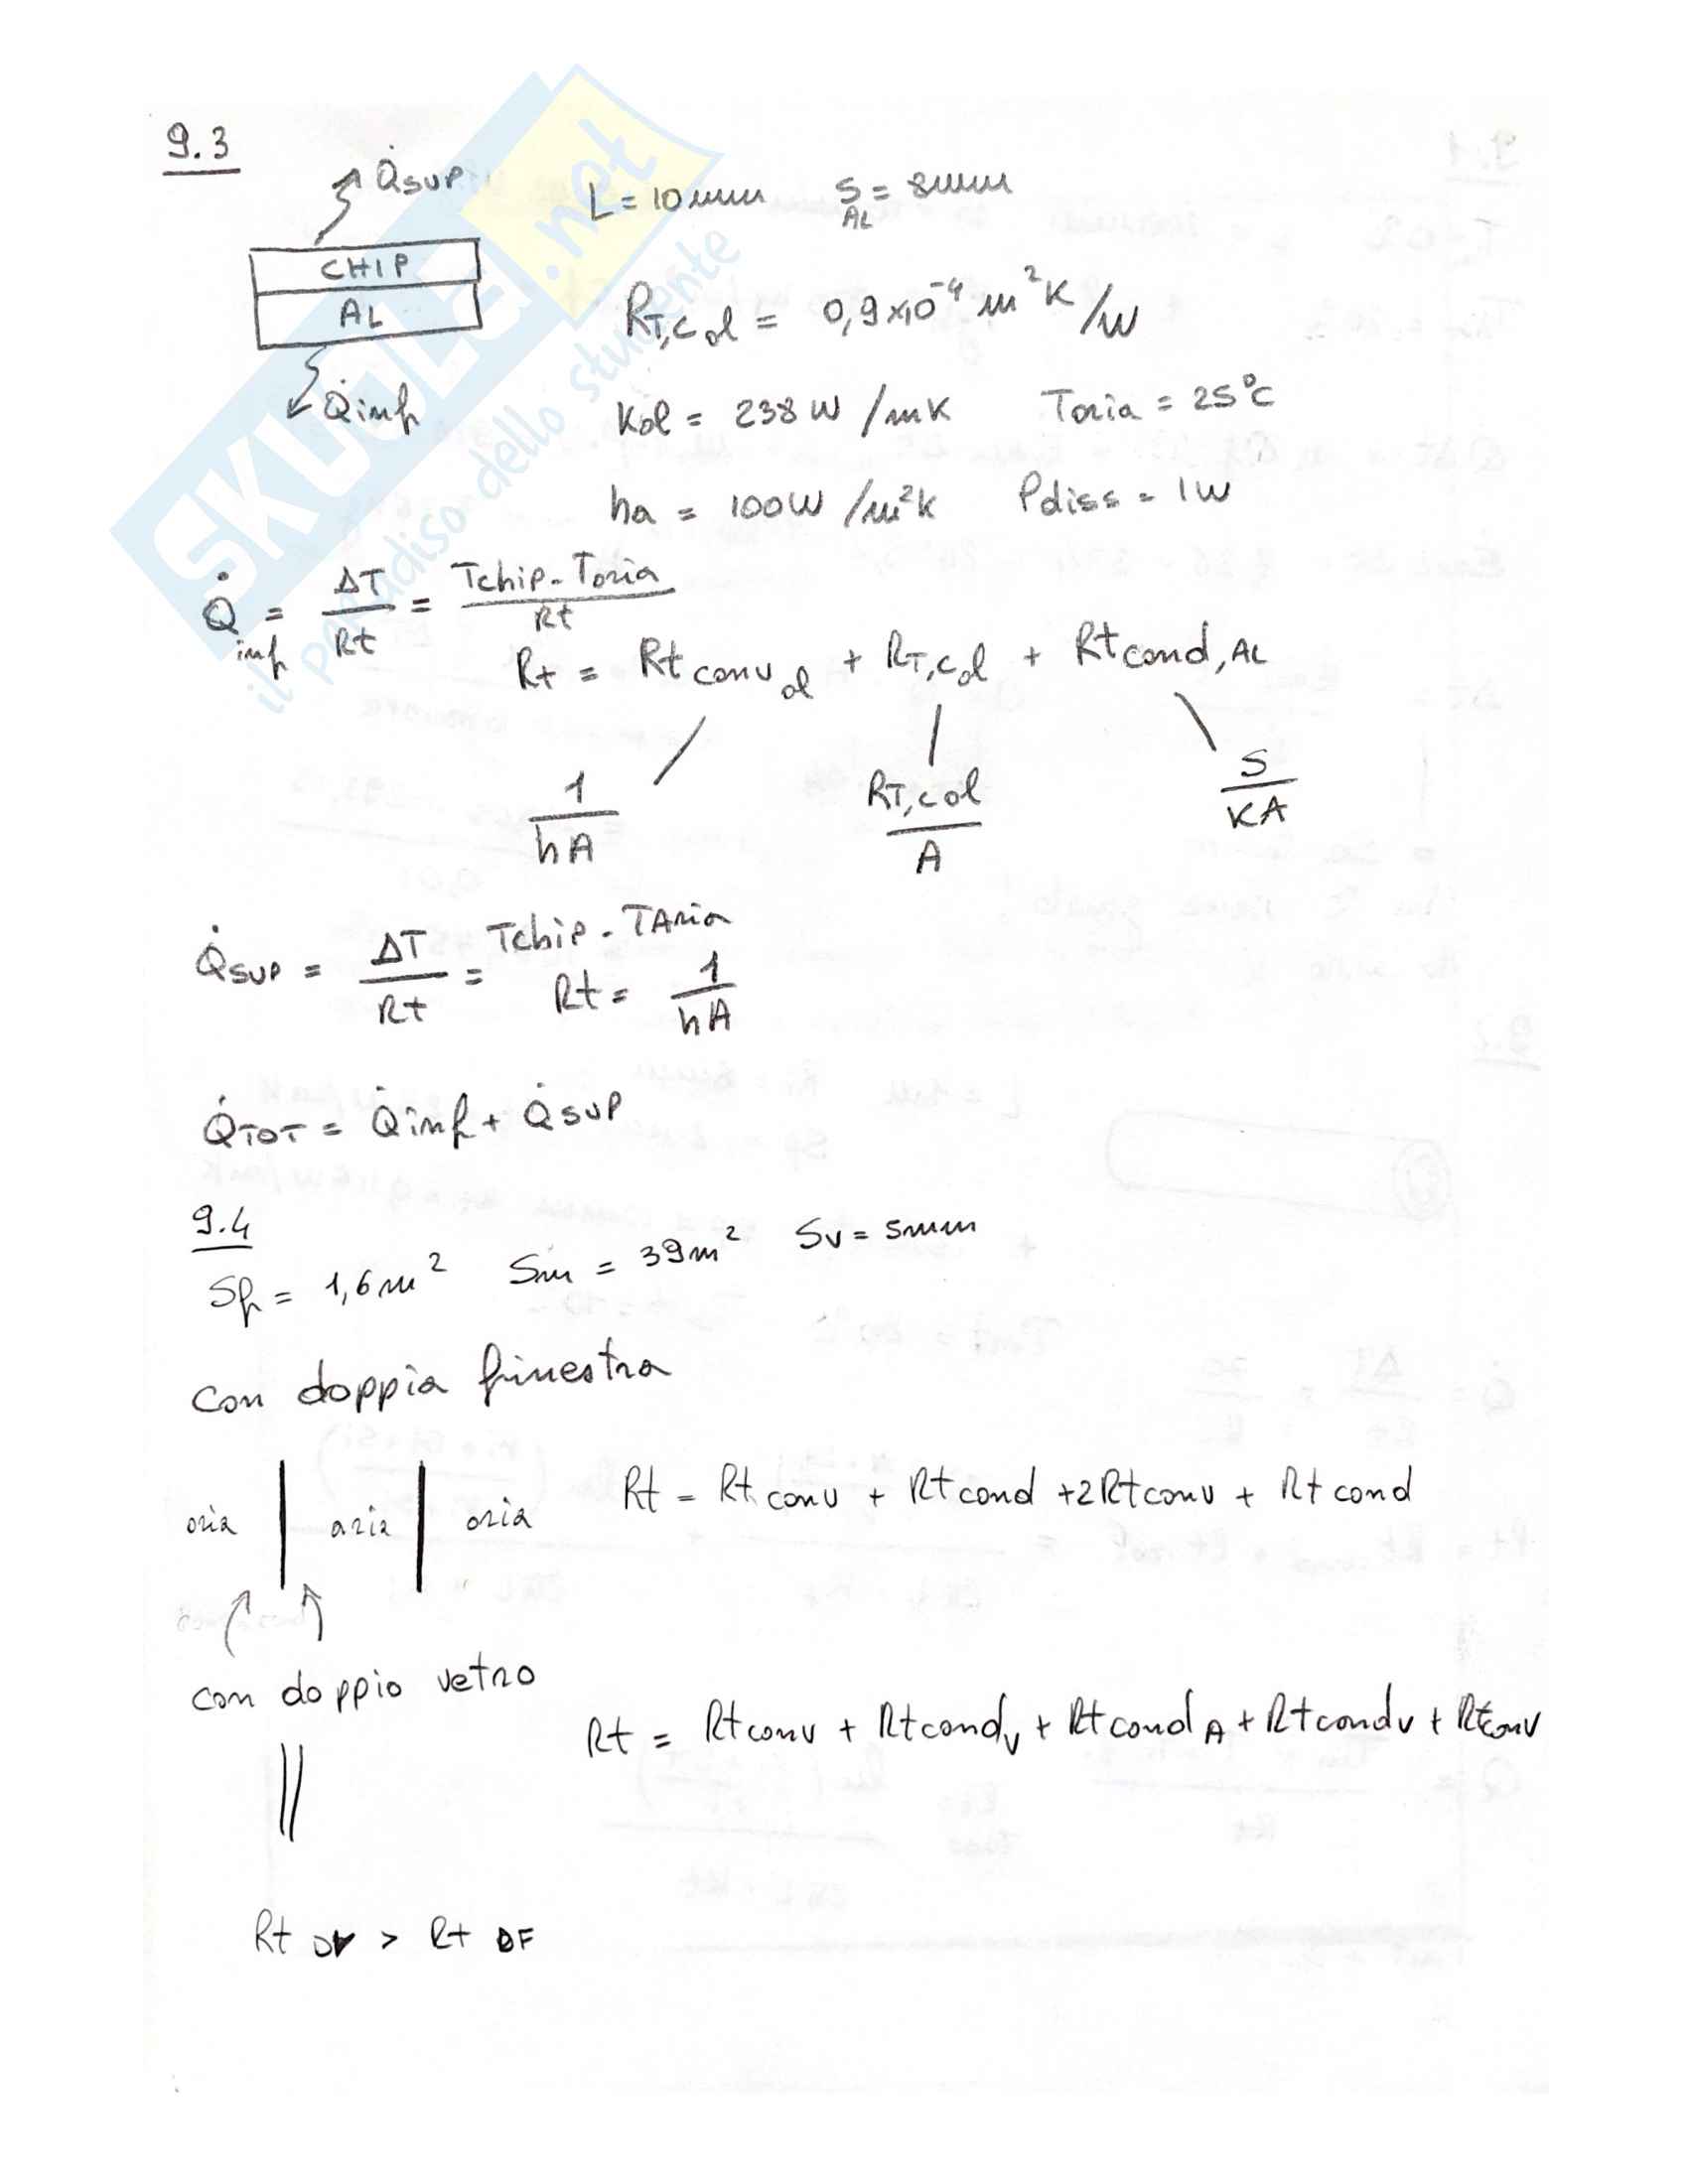 9.3
Q̇sup
L = 10mm S AL = 8mm
CHIP
AL
RT,col = 0,9x10⁻⁴ m²K/W
Q̇inf
Kal = 238 W/mK Taria = 25°C
ha = 100W/m²K Pdiss = 1W
Q̇inf = ΔT/Rt = Tchip-Taria/Rt
Rt = Rt conv al + RT,col + Rt cond,AL
1/hA RT,col/A S/KA
Q̇sup = ΔT/Rt = Tchip - TAria Rt = 1/hA
Q̇TOT = Q̇inf + Q̇sup
9.4
Sf = 1,6m² Sm = 39m² Sv = 5mm
con doppia finestra
aria aria aria
Rt = Rt conv + Rt cond + 2Rt conv + Rt cond
con doppio vetro
Rt = Rt conv + Rt cond v + Rt cond A + Rt cond v + Rt conv
Rt DV > Rt DF
SKUOLA.net
il paradiso dello studente